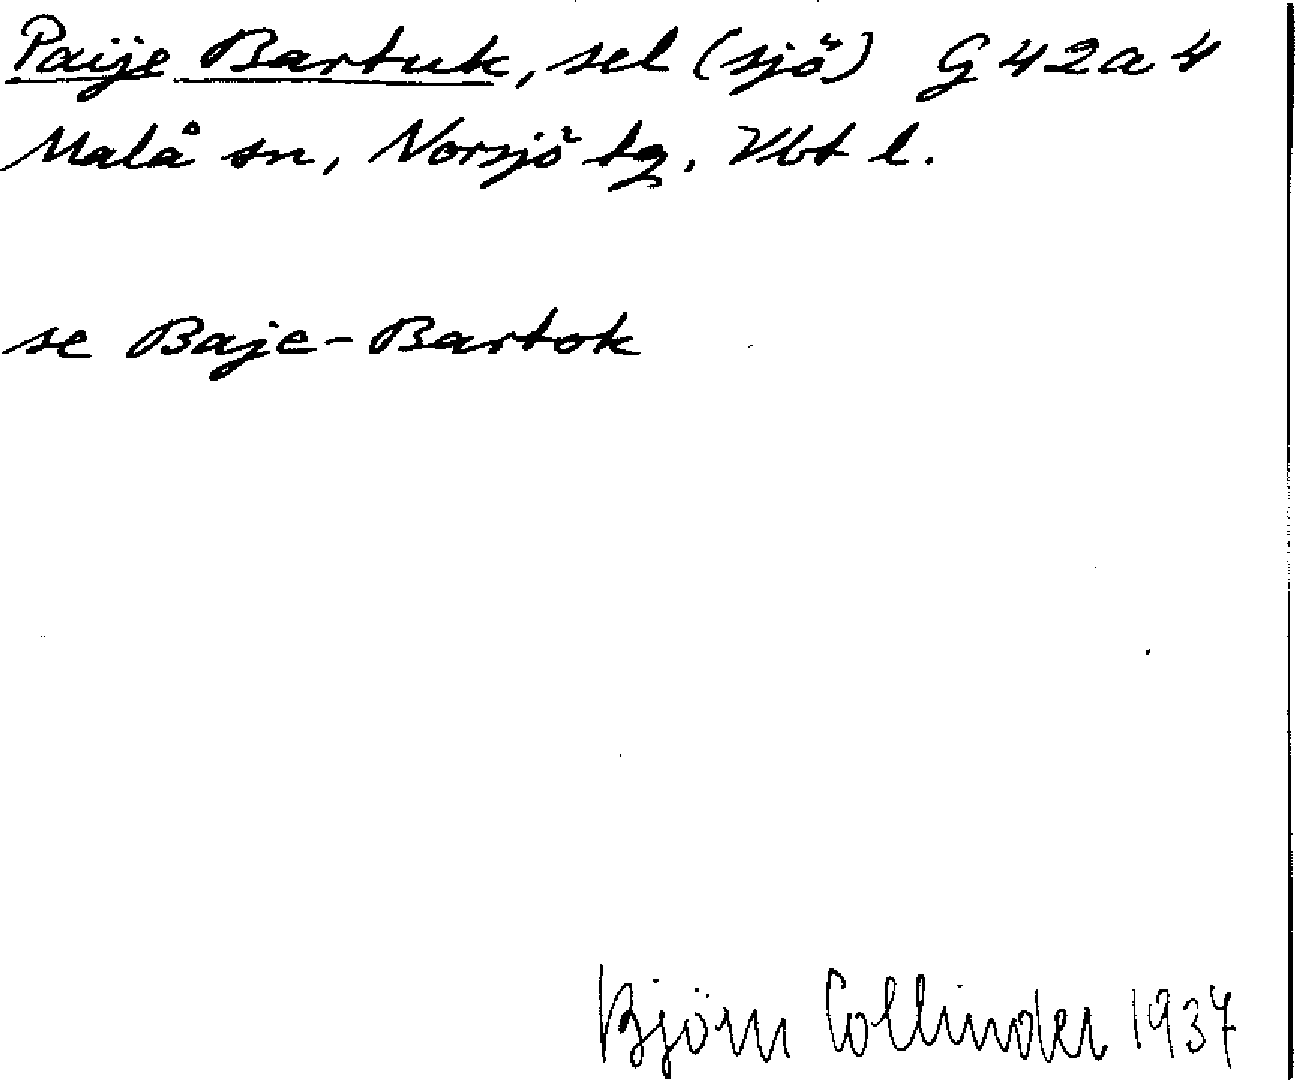 Paije Bartuk, sel (sjö) G 42 a 4
Malå sn, Norsjö tg, Vbt l.
se Baje-Bartok
Björn Collinder 1937